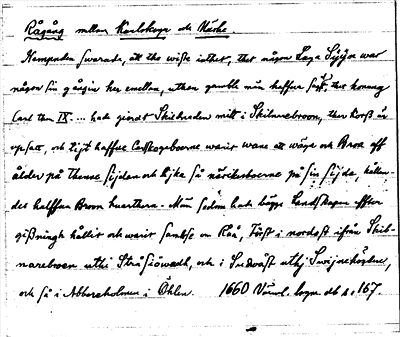 Rågång mellan Karlskoga och Närke
Nempnden swarade, att the wiste inthet, ther någon Laga Syyn war
någon sin gången her emellan, uthan gamble män haffwa sagt, ther konung
Carl then IX ... hade giordt Skilnaden mitt i Skilnarebroon, ther Korß är
opsatt, och tijt haffue Carlskogeboerne warit wane att wäga och Broa off
ålder på thenne sijdan och lijka så närikesboerne på sin sijda, hållan-
des halffua Broon huarthera. Men sedan hade bägge Landskapen effter
gißningh hållit och warit samhje om Råå, Först i nordost ifrån Skil-
narebroen uthi Stråsiöwadh, och i Sudwäst uthj Swijnehöyden,
och så i Abboreholmen i Öhlen. 1660 Värml. lagm. db s. 167.